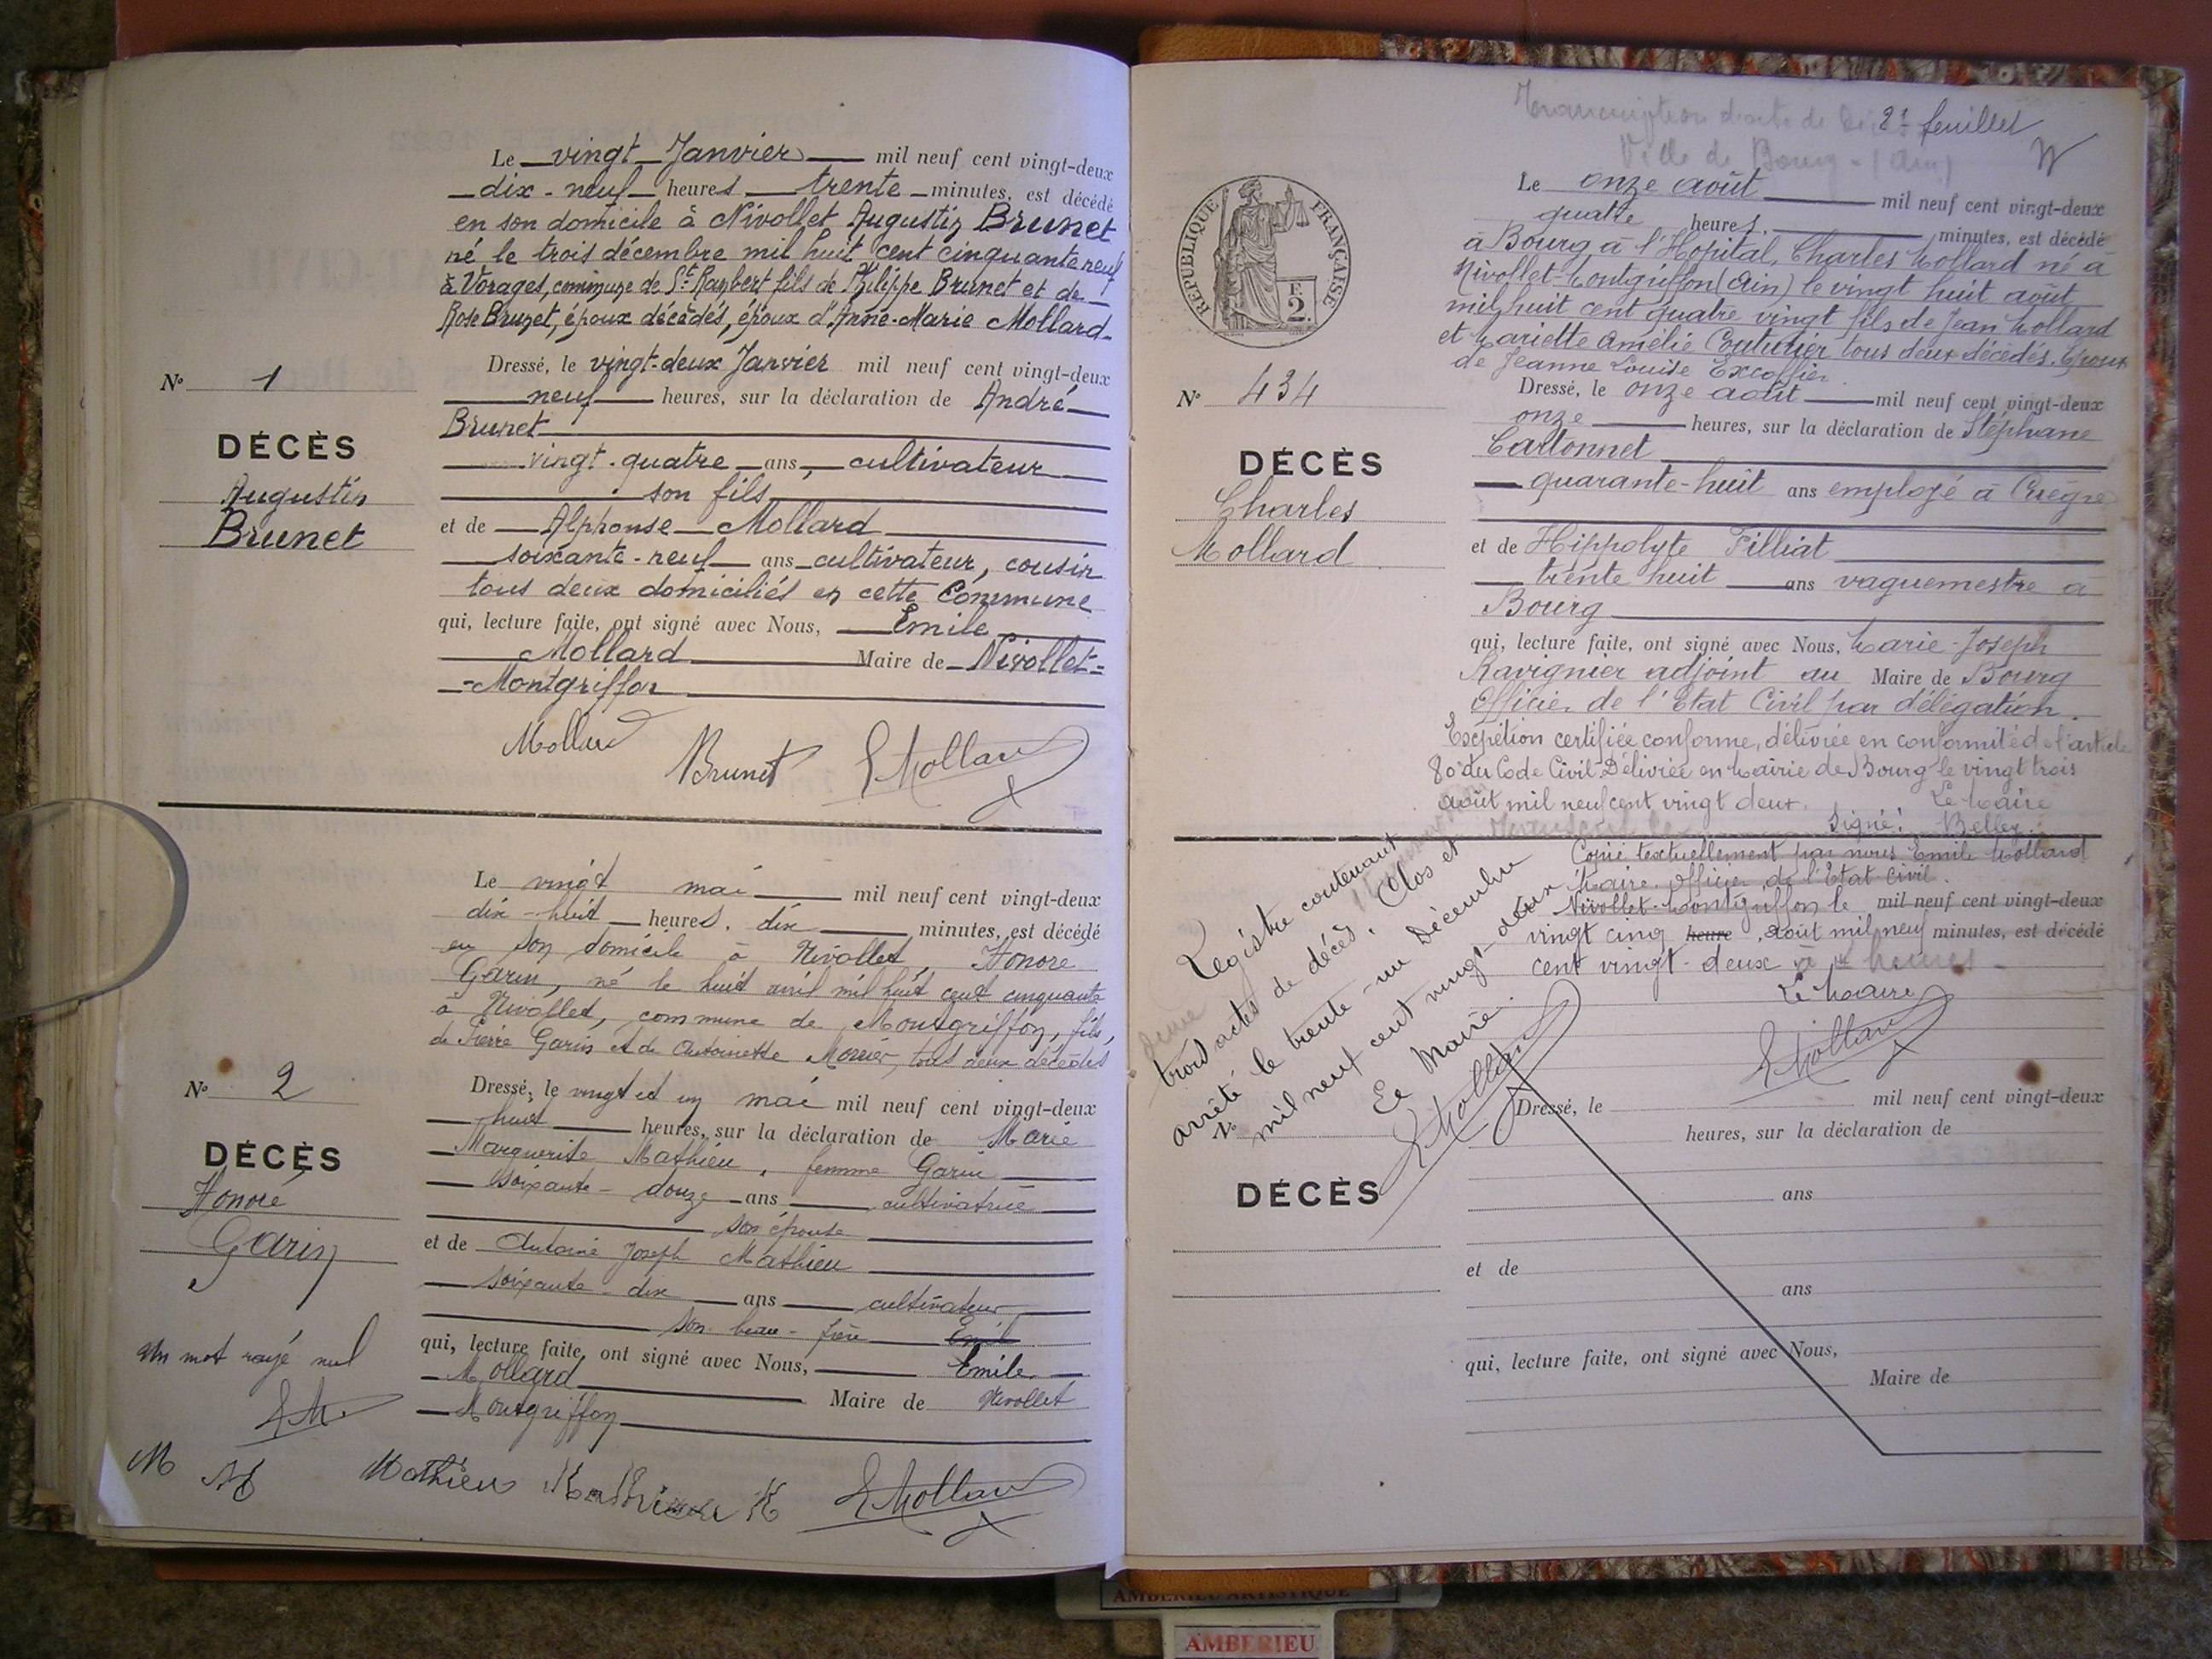 Le vingt Janvier mil neuf cent vingt-deux
dix-neuf heures trente minutes, est décédé
en son domicile à Nivollet Augustin Brunet
né le trois décembre mil huit cent cinquante neuf
à Vorages, commune de St Rambert fils de Philippe Brunet et de
Rose Brunet, époux décédés, époux d'Anne-Marie Mollard
Dressé, le vingt-deux Janvier mil neuf cent vingt-deux
neuf heures, sur la déclaration de André
Brunet
vingt-quatre ans, cultivateur
son fils
et de Alphonse Mollard
soixante-neuf ans cultivateur, cousin
tous deux domiciliés en cette Commune
qui, lecture faite, ont signé avec Nous, Emile
Mollard Maire de Nivollet-
-Montgriffon
N° 1
DÉCÈS
Augustin
Brunet
Mollard Brunet E Mollard
Le vingt mai mil neuf cent vingt-deux
dix-huit heures, dix minutes, est décédé
en son domicile à Nivollet, Honoré
Garin, né le huit avril mil huit cent cinquante
à Nivollet, commune de Montgriffon, fils,
de Pierre Garin et de Antoinette Monier, tous deux décédés
Dressé, le vingt et un mai mil neuf cent vingt-deux
huit heures, sur la déclaration de Marie
Marguerite Mathieu, femme Garin
soixante-douze ans cultivatrice
son épouse
et de Antoine Joseph Mathieu
soixante-dix ans cultivateur
son beau-frère Emil
qui, lecture faite, ont signé avec Nous, Emile
Mollard Maire de Nivollet
Montgriffon
N° 2
DÉCÈS
Honoré
Garin
un mot rayé nul
E M.
M M
Mathieu E Mollard
Transcription d'acte de 2e feuillet
Ville de Bourg - (Ain)
RÉPUBLIQUE FRANÇAISE
2 F.
Le onze août mil neuf cent vingt-deux
quatre heures, minutes, est décédé
à Bourg à l'Hopital, Charles Mollard né à
Nivollet-Montgriffon (Ain) le vingt huit août
mil huit cent quatre vingt fils de Jean Mollard
et Mariette Amélie Couturier tous deux décédés. Epoux
de Jeanne Louise Excoffier.
Dressé, le onze août mil neuf cent vingt-deux
onze heures, sur la déclaration de Stéphane
Cartonnet
quarante-huit ans employé à
et de Hippolyte Filliat
trente huit ans vaguemestre à
Bourg
qui, lecture faite, ont signé avec Nous, Marie-Joseph
Ravignier adjoint au Maire de Bourg
Officier de l'Etat Civil par délégation.
Expédition certifiée conforme, délivrée en conformité de l'article
80 du Code Civil Délivrée en Mairie de Bourg le vingt trois
août mil neuf cent vingt deux. Le Maire
Signé: Belley.
N° 434
DÉCÈS
Charles
Mollard
Copié textuellement par nous Emile Mollard
Maire, Officier de l'Etat-Civil.
Nivollet-Montgriffon le mil neuf cent vingt-deux
vingt cinq heure, août mil neuf minutes, est décédé
cent vingt-deux à heures
Le Maire
E Mollard
Registre contenant
trois actes de décès. Clos et
arrêté le trente-un Décembre
mil neuf cent vingt-deux
Le Maire.
E Mollard
N°
DÉCÈS
Dressé, le mil neuf cent vingt-deux
heures, sur la déclaration de
ans
et de
ans
qui, lecture faite, ont signé avec Nous,
Maire de
AMBERIEU ARTISTIQUE
AMBERIEU